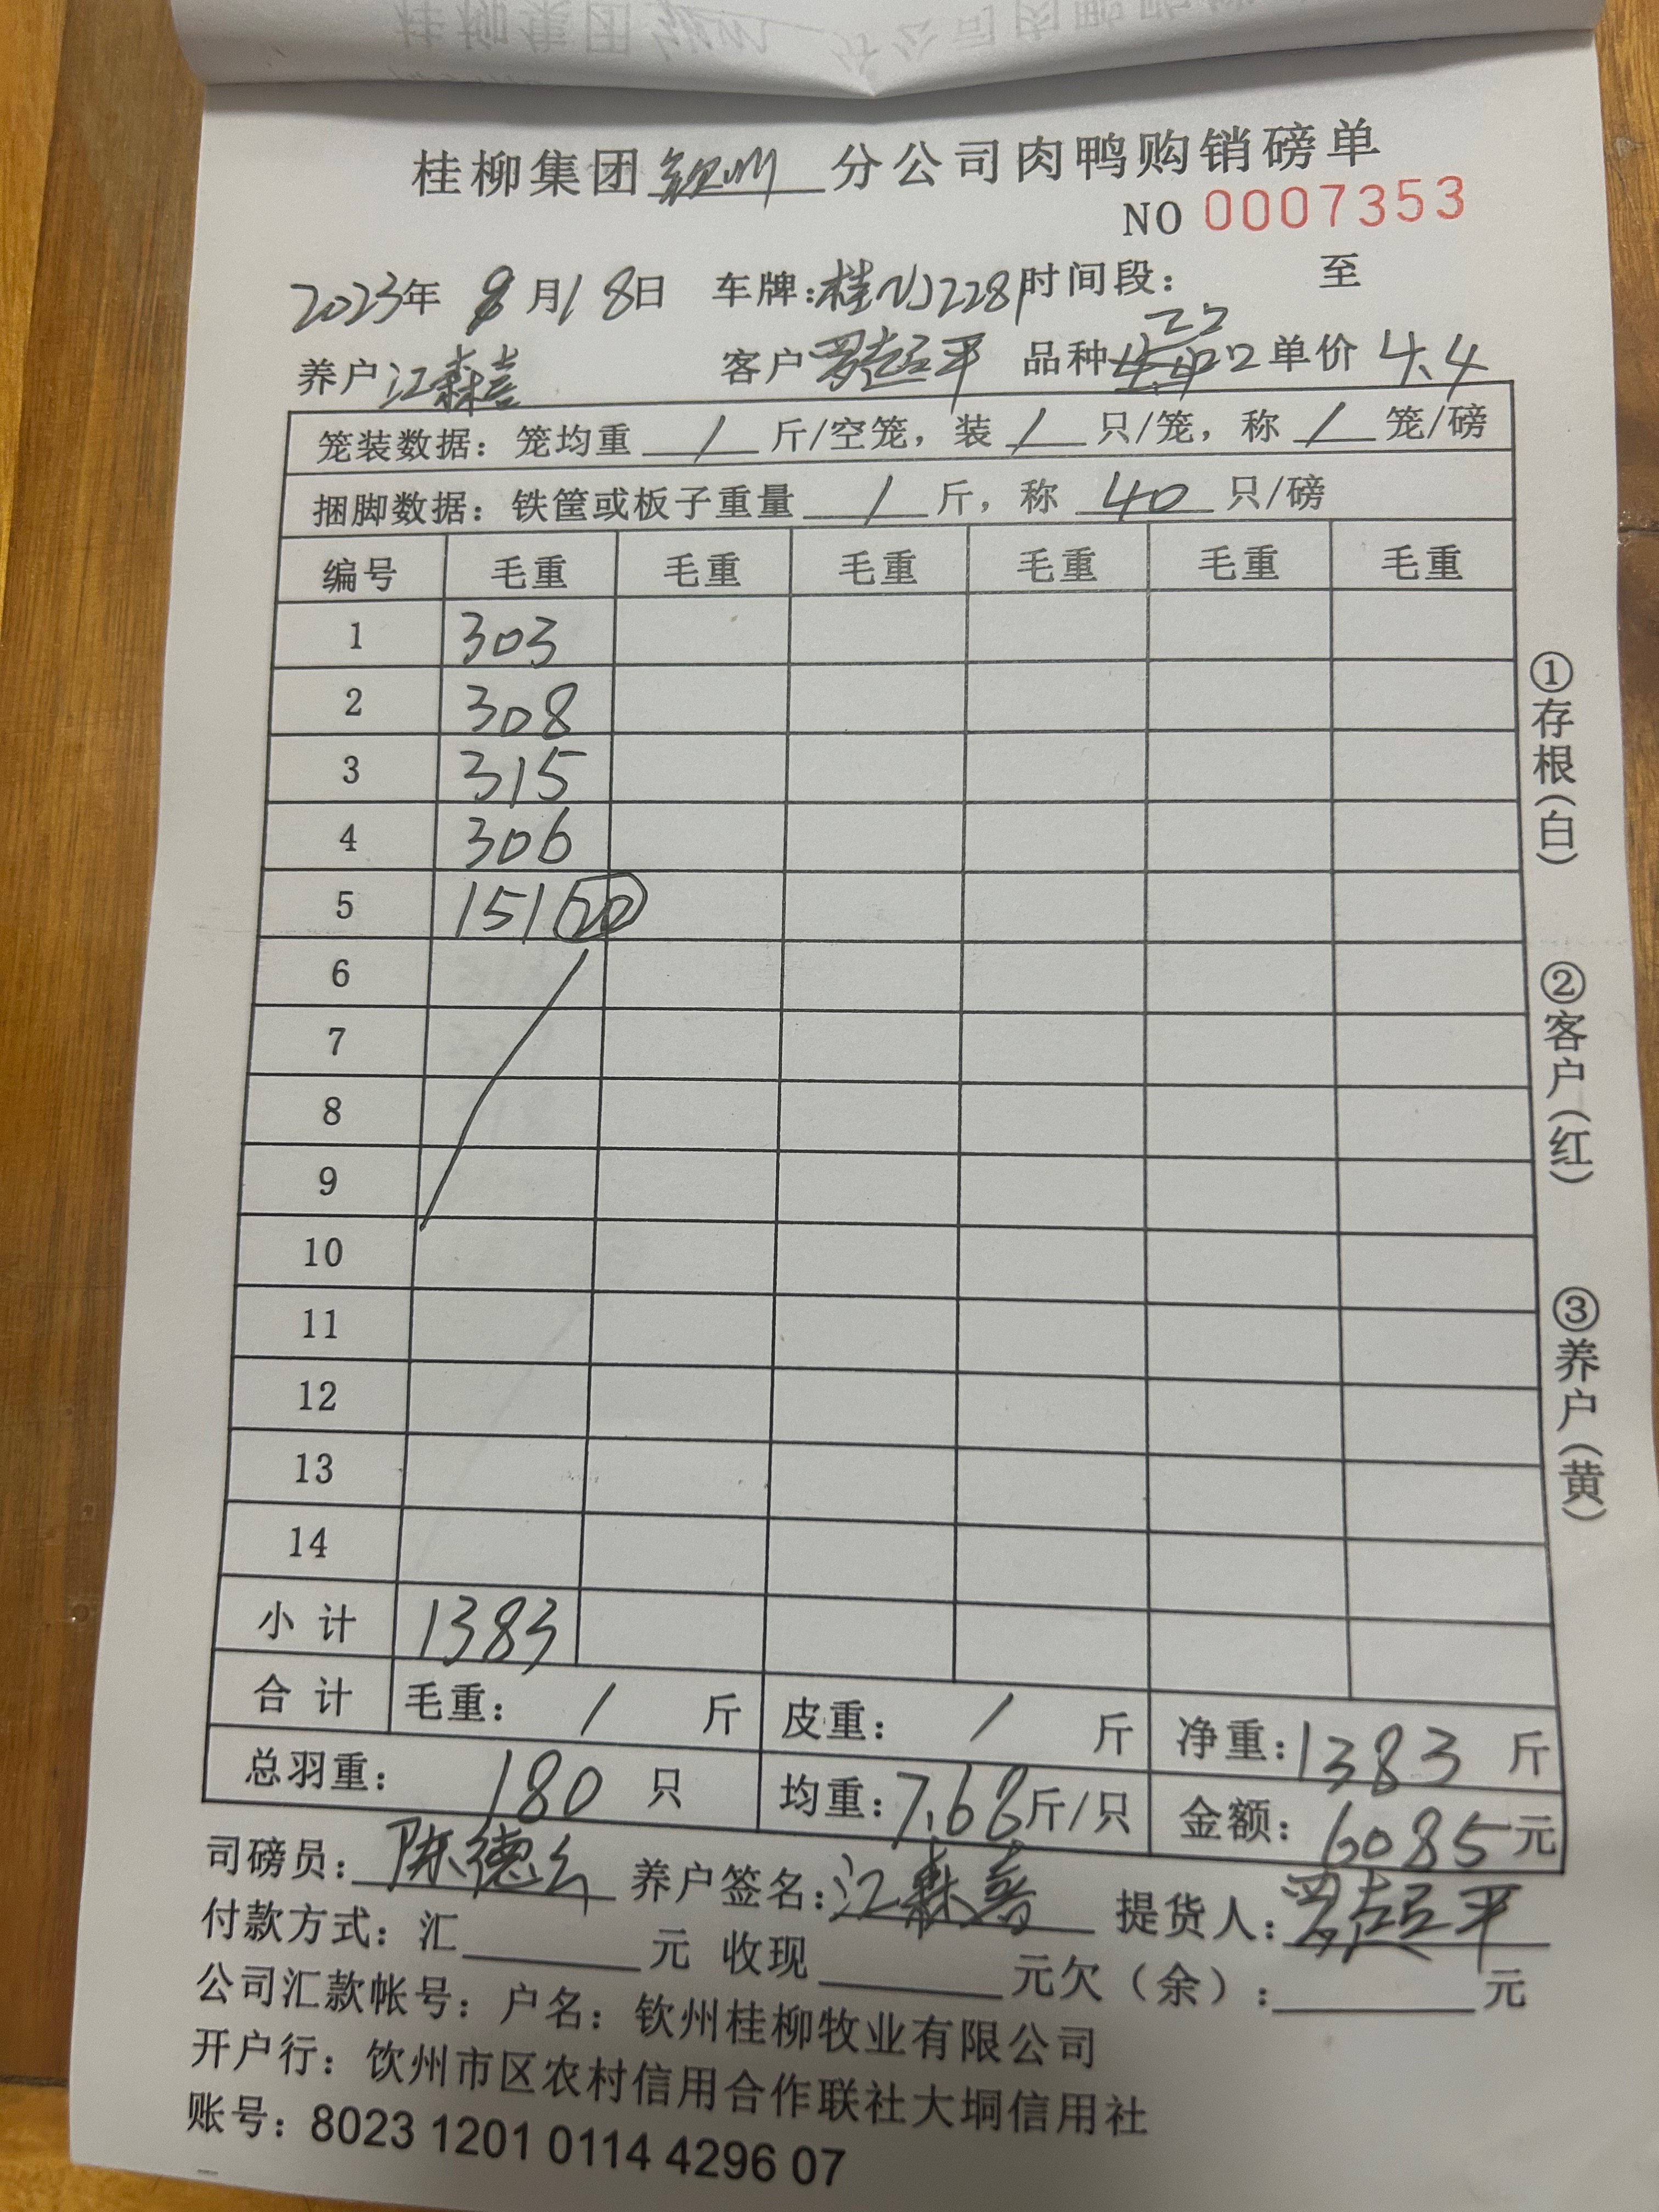 桂柳集团钦州分公司肉鸭购销磅单
NO 0007353
2023年 8月18日 车牌:桂 2281时间段: 至
养户江森喜 客户罗起平 品种 单价 4.4
笼装数据: 笼均重 / 斤/空笼, 装 / 只/笼, 称 / 笼/磅
捆脚数据: 铁筐或板子重量 / 斤, 称 40 只/磅
编号 毛重 毛重 毛重 毛重 毛重 毛重
1 303
2 308
3 315
4 306
5 151 20
6
7
8
9
10
11
12
13
14
小计 1383
合计 毛重: / 斤 皮重: / 斤 净重:1383 斤
总羽重: 180 只 均重:7.68斤/只 金额: 6085元
司磅员: 陈德 养户签名:江森喜 提货人:罗起平
付款方式: 汇 元 收现 元欠(余): 元
公司汇款帐号: 户名: 钦州桂柳牧业有限公司
开户行: 饮州市区农村信用合作联社大垌信用社
账号: 8023 1201 0114 4296 07
①存根(白)
②客户(红)
③养户(黄)